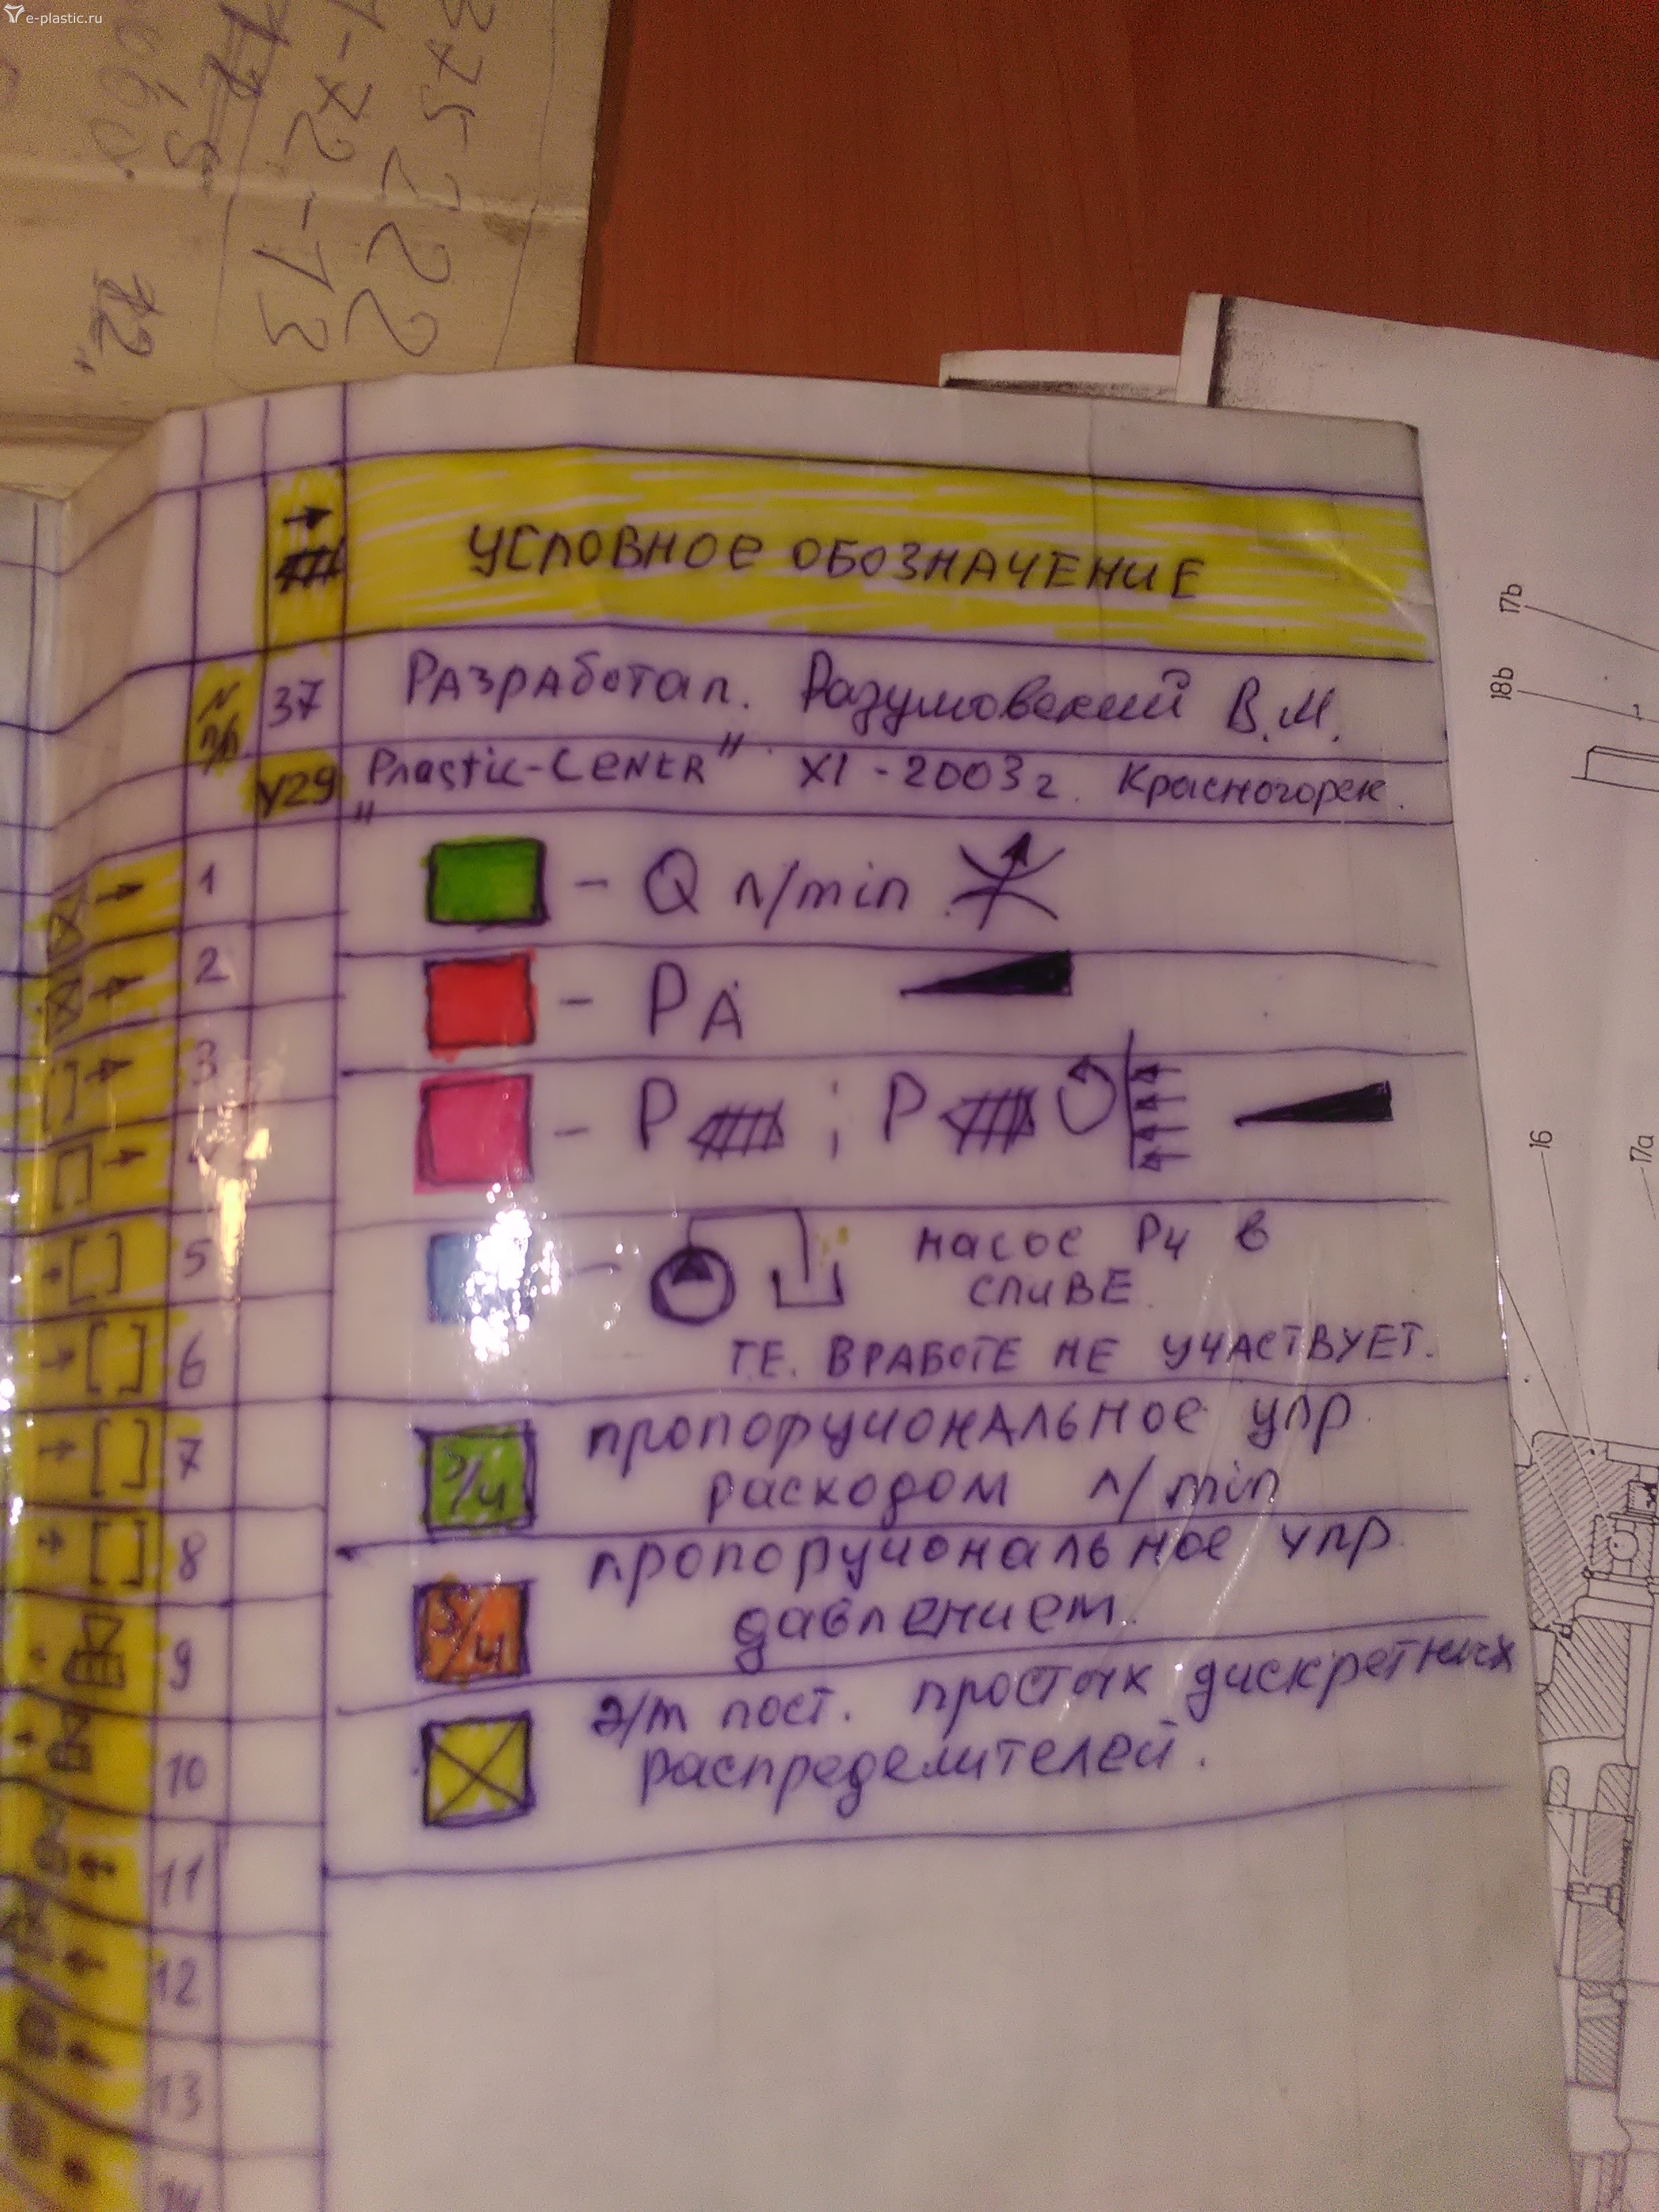 e-plastic.ru
375-222
-72-73
72
УСЛОВНОЕ ОБОЗНАЧЕНИЕ
N п/п
37 Разработал. Разумовский В.М.
У29 „Plastic-CENTR" XI-2003г. Красногорск.
1
2
3
4
5
6
7
8
9
10
11
12
13
14
- Q л/min
- PA
- P ; P
- насос Рч в
сливе
Т.Е. В РАБОТЕ НЕ УЧАСТВУЕТ.
Э/Ч пропорциональное упр.
расходом л/min
Э/Ч пропорциональное упр.
давлением.
Э/м пост. простых дискретных
распределителей.
17b
18b
16
17a